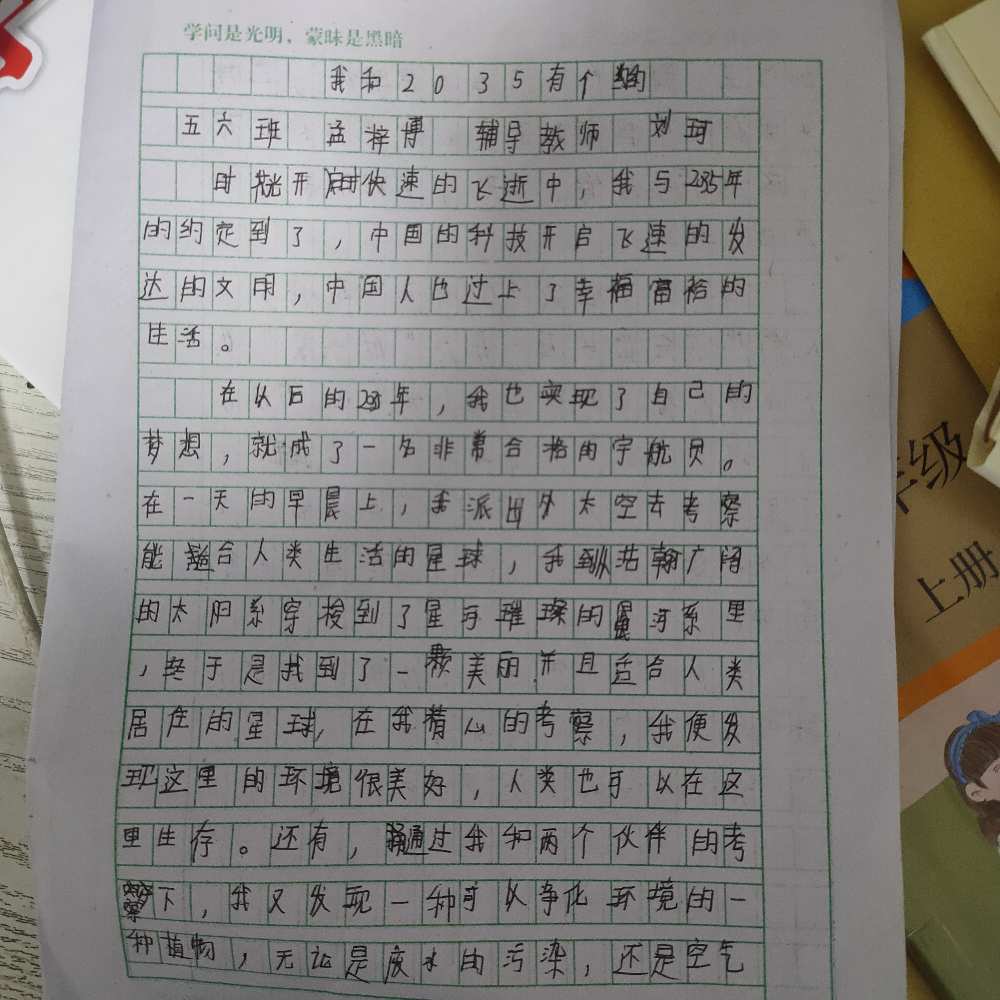 学问是光明，蒙昧是黑暗
我和2035有个约
五六班 孟梓博 辅导教师 刘珂
时光开启快速的飞逝中，我与2035年
的约定到了，中国的科技开启飞速的发
达的文明，中国人也过上了幸福富裕的
生活。
在以后的2035年，我也实现了自己的
梦想，就成了一名非常合格的宇航员。
在一天的早晨上，我派出外太空去考察
能适合人类生活的星球，我到从浩翰广阔
的太阳系穿梭到了星舟璀璨的星河系里
，终于是找到了一颗美丽并且适合人类
居住的星球，在我精心的考察，我便发
现这里的环境很美好，人类也可以在这
里生存。还有，通过我和两个伙伴的考
察下，我又发现一种可以争化环境的一
种植物，无论是废水的污染，还是空气
年级
上册